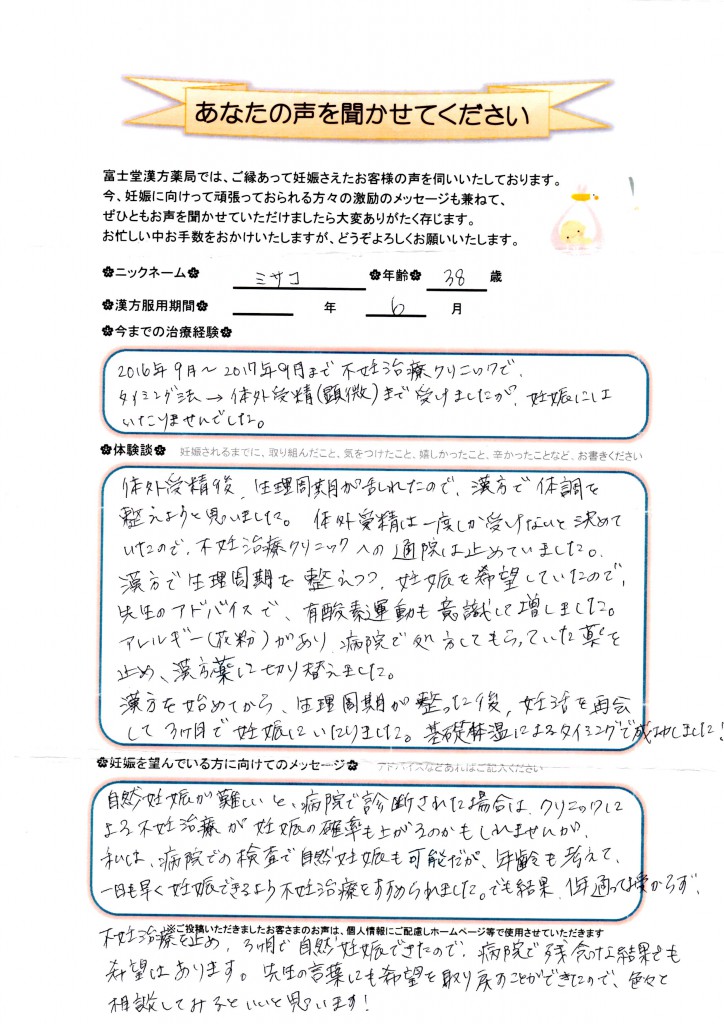 あなたの声を聞かせてください
富士堂漢方薬局では、ご縁あって妊娠さえたお客様の声を伺いいたしております。
今、妊娠に向けって頑張っておられる方々の激励のメッセージも兼ねて、
ぜひともお声を聞かせていただけましたら大変ありがたく存じます。
お忙しい中お手数をおかけいたしますが、どうぞよろしくお願いいたします。
✿ニックネーム✿ ミサコ ✿年齢✿ 38 歳
✿漢方服用期間✿ 年 6 月
✿今までの治療経験✿
2016年9月〜2017年9月まで不妊治療クリニックで、
タイミング法→体外受精(顕微)まで受けましたが、妊娠には
いたりませんでした。
✿体験談✿ 妊娠されるまでに、取り組んだこと、気をつけたこと、嬉しかったこと、辛かったことなど、お書きください
体外受精後、生理周期が乱れたので、漢方で体調を
整えようと思いました。体外受精は一度しか受けないと決めて
いたので、不妊治療クリニックへの通院は止めていました。
漢方で生理周期を整えつつ、妊娠を希望していたので、
先生のアドバイスで、有酸素運動も意識して増しました。
アレルギー(花粉)があり、病院で処方してもらっていた薬を
止め、漢方薬に切り替えました。
漢方を始めてから、生理周期が整った後、妊活を再会
して3ヶ月で妊娠にいたりました。基礎体温によるタイミングで成功しました!
✿妊娠を望んでいる方に向けてのメッセージ✿ アドバイスなどあればご記入ください
自然妊娠が難しいと、病院で診断された場合は、クリニックに
よる不妊治療が妊娠の確率も上がるのかもしれませんが、
私は、病院での検査で自然妊娠も可能だが、年齢も考えて、
一日も早く妊娠できるよう不妊治療をすすめられました。でも結果、1年通っては授からず、
※ご投稿いただきましたお客さまのお声は、個人情報にご配慮しホームページ等で使用させていただきます
不妊治療を止め、3ヶ月で自然妊娠できたので、病院で残念な結果でも
希望はあります。先生の言葉にも希望を取り戻すことができたので、色々と
相談してみるといいと思います!